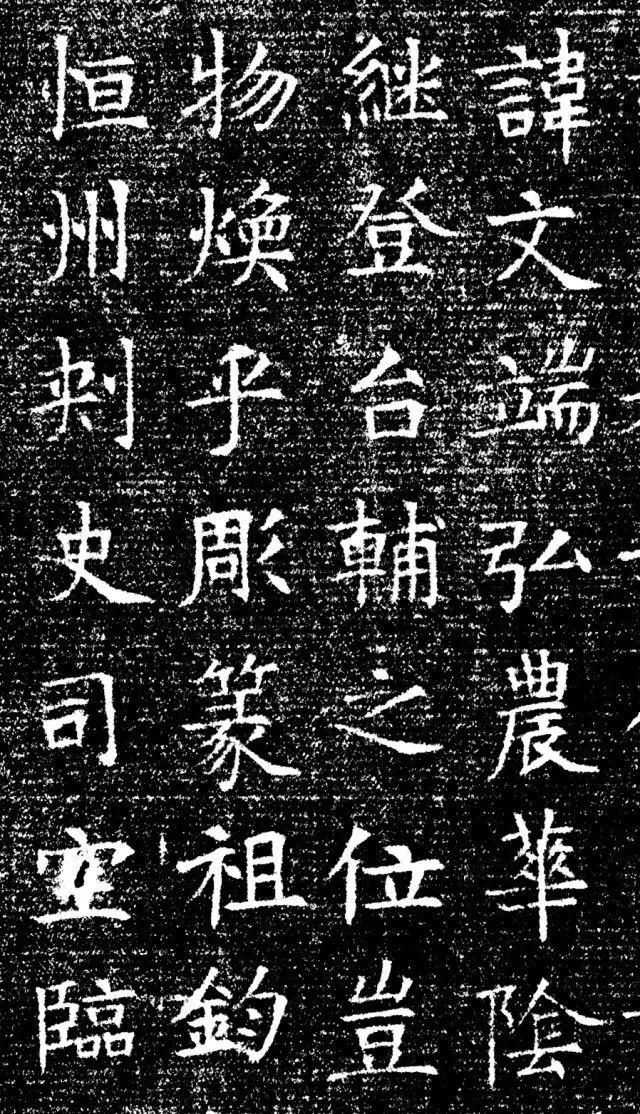 諱文端弘農華陰
継登台輔之位豈
物煥乎彫篆祖鈞
恒州刺史司空臨